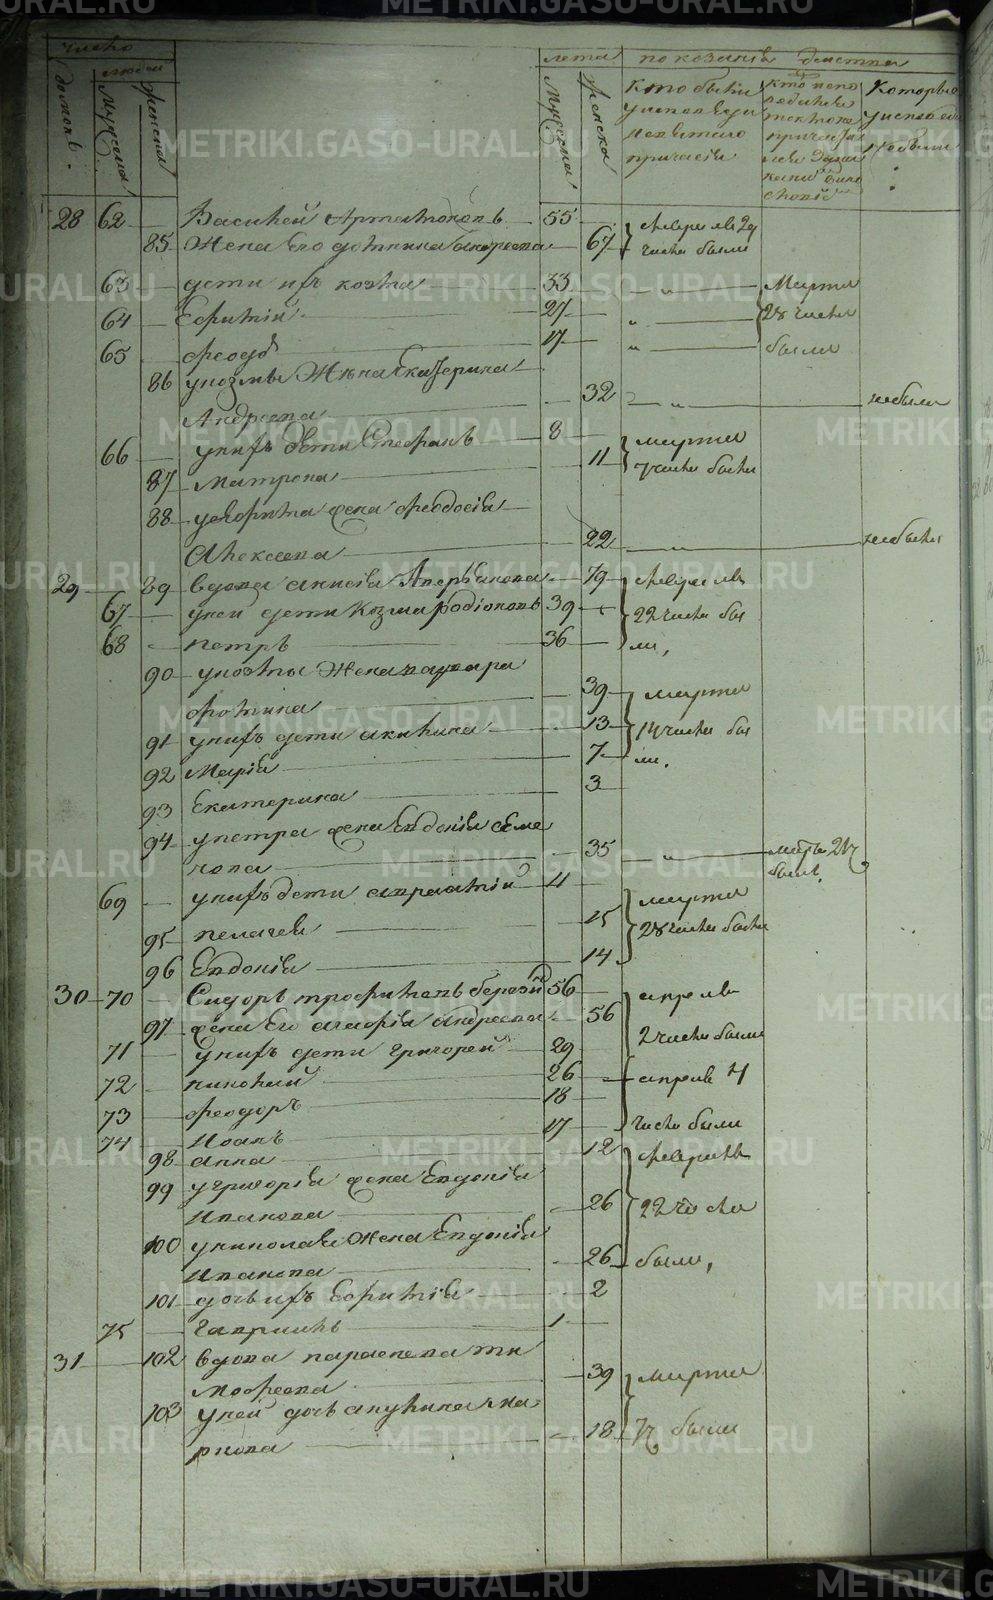 METRIKI.GASO-URAL.RU
число
людей
лета
показаніе действа
домовъ
мужеска
женска
мужеска
женска
кто были
у исповеди
и святаго
причастія
которые
у исповеди
не были
28 62 Василей Артамоновъ 55 февраля 29
85 жена его Домника Андреева 67 числа были
63 дети ихъ Козма 33 „ марта
64 Ефимій 27 „ 28 числа
65 Феодоръ 17 „ были
86 у козмы жена Екатерина
Андреева 32 „ не были
66 у нихъ дети Стефанъ 8 марта
87 Матрона 11 7 числа были
88 у Ефима жена Феодосія
Алексеева 22 „ не были
29 89 вдова Анисія Аверьянова 79 февраля
67 у ней дети Козма Родіоновъ 39 22 числа бы
68 петръ 36 ли,
90 у козмы жена
39 марта
91 у нихъ дети Акилина 13 14 числа бы
92 Марія 7 ли.
93 Екатерина 3
94 у петра жена Евдокія Семе
нова 35 „ марта 21 ч
были.
69 у нихъ дети 4 марта
95 пелагея 15 28 числа были
96 Евдокія 14
30 70 Сидоръ трофимовъ 56 апреля
97 жена его агафія Андреева 56 2 числа были
71 у нихъ дети григорей 29
72 николай 26 апреля 4
73 феодоръ 18
74 Иоанъ 17 числа были
98 анна 12 февраля
99 у григорія жена Евдокія
Иванова 26 22 числа
100 у николая жена Евдокія
Иванова 26 были,
101 дочь ихъ Ефимія 2
75 гавриилъ 1
31 102 вдова параскева ти
мофеева 39 марта
103 у ней дочь акулина ма
ркова 18 7 ч были